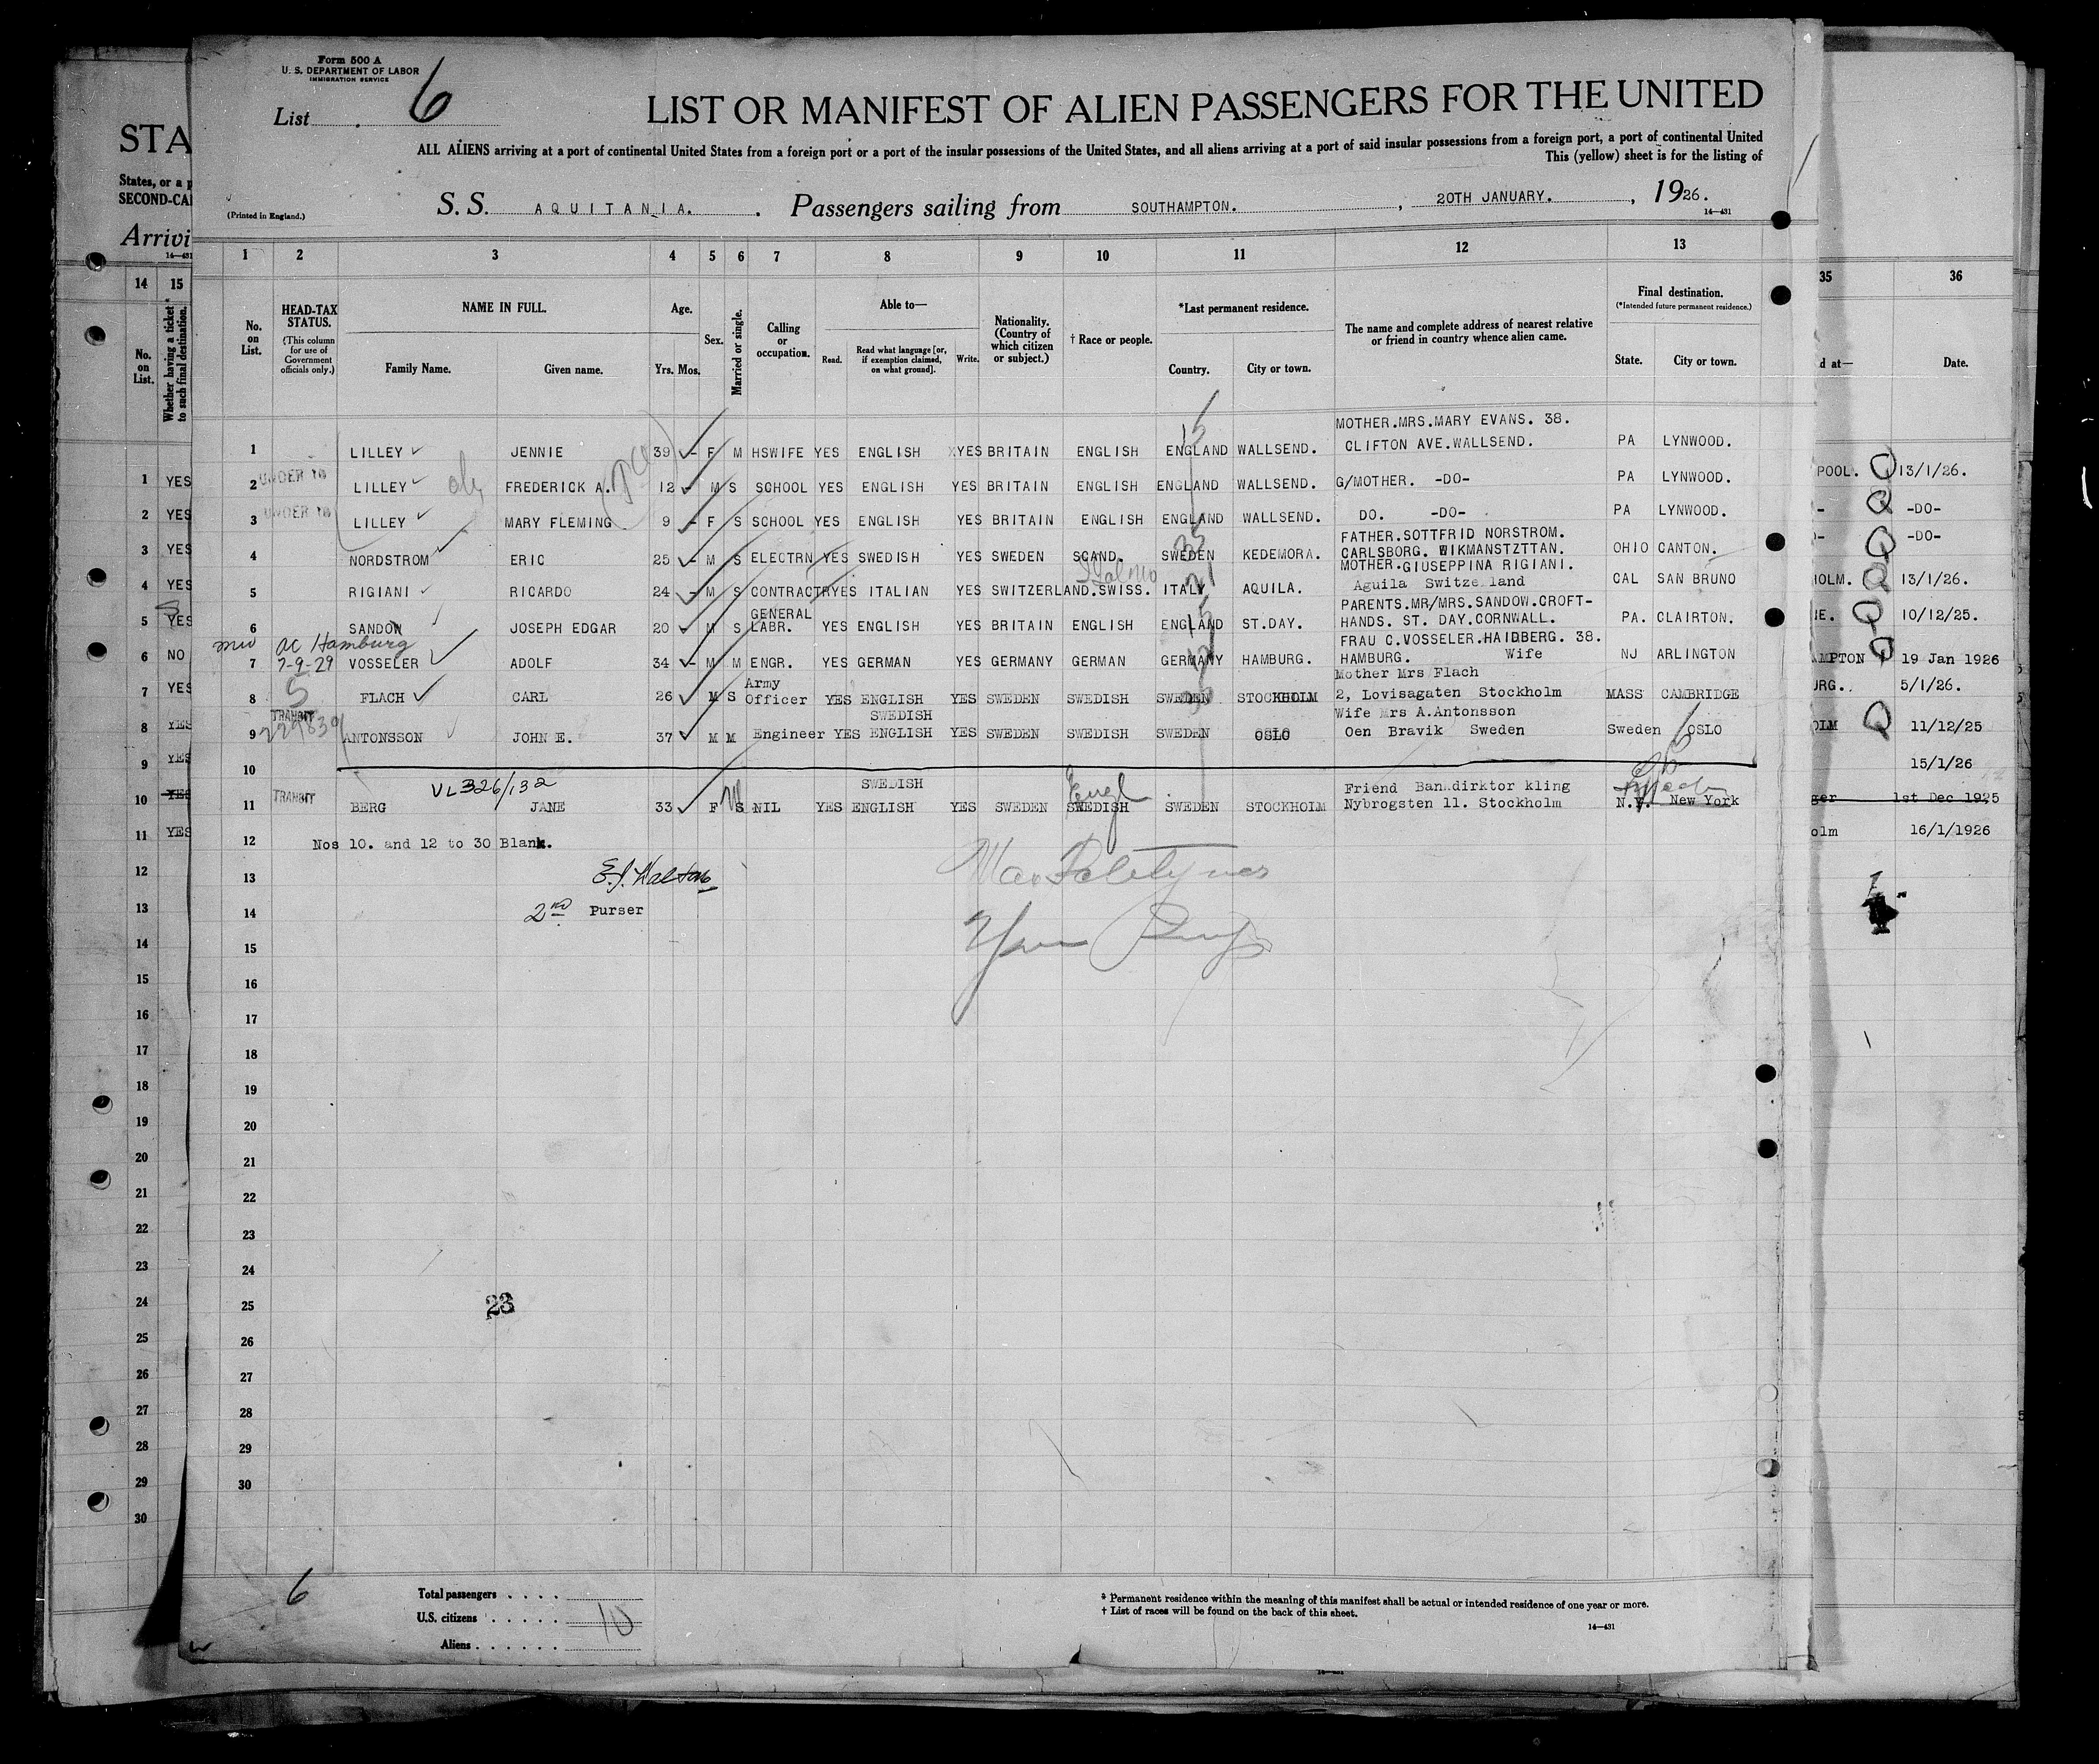 Form 500 A
U. S. DEPARTMENT OF LABOR
IMMIGRATION SERVICE
List 6
LIST OR MANIFEST OF ALIEN PASSENGERS FOR THE UNITED
ALL ALIENS arriving at a port of continental United States from a foreign port or a port of the insular possessions of the United States, and all aliens arriving at a port of said insular possessions from a foreign port, a port of continental United
This (yellow) sheet is for the listing of
(Printed in England.)
S. S. AQUITANIA. Passengers sailing from SOUTHAMPTON. , 20TH JANUARY. , 1926.
14—431
STA
States, or a p
SECOND-CAI
Arrivi
14—431
1 2 3 4 5 6 7 8 9 10 11 12 13
14 15
35 36
No. on List.
HEAD-TAX STATUS.
(This column for use of Government officials only.)
NAME IN FULL.
Family Name. Given name.
Age.
Yrs. Mos.
Sex.
Married or single.
Calling or occupation.
Able to—
Read. Read what language [or, if exemption claimed, on what ground]. Write.
Nationality. (Country of which citizen or subject.)
† Race or people.
*Last permanent residence.
Country. City or town.
The name and complete address of nearest relative or friend in country whence alien came.
Final destination.
(*Intended future permanent residence.)
State. City or town.
No. on List.
Whether having a ticket to such final destination.
d at— Date.
MOTHER.MRS.MARY EVANS. 38.
1 LILLEY JENNIE 39 F M HSWIFE YES ENGLISH YES BRITAIN ENGLISH ENGLAND WALLSEND. CLIFTON AVE.WALLSEND. PA LYNWOOD.
2 UNDER 16 LILLEY FREDERICK A. 12 M S SCHOOL YES ENGLISH YES BRITAIN ENGLISH ENGLAND WALLSEND. G/MOTHER. -DO- PA LYNWOOD.
3 UNDER 16 LILLEY MARY FLEMING 9 F S SCHOOL YES ENGLISH YES BRITAIN ENGLISH ENGLAND WALLSEND. DO. -DO- PA LYNWOOD.
FATHER.SOTTFRID NORSTROM.
4 NORDSTROM ERIC 25 M S ELECTRN YES SWEDISH YES SWEDEN SCAND. SWEDEN KEDEMORA. CARLSBORG. WIKMANSTZTTAN. OHIO CANTON.
MOTHER.GIUSEPPINA RIGIANI.
5 RIGIANI RICARDO 24 M S CONTRACTR YES ITALIAN YES SWITZERLAND.SWISS. ITALY AQUILA. Aguila Switzerland CAL SAN BRUNO
PARENTS.MR/MRS.SANDOW.CROFT-
6 SANDOW JOSEPH EDGAR 20 M S GENERAL LABR. YES ENGLISH YES BRITAIN ENGLISH ENGLAND ST.DAY. HANDS. ST. DAY.CORNWALL. PA. CLAIRTON.
AC Hamburg
FRAU C.VOSSELER.HAIDBERG. 38.
7 7-9-29 VOSSELER ADOLF 34 M M ENGR. YES GERMAN YES GERMANY GERMAN GERMANY HAMBURG. HAMBURG. Wife NJ ARLINGTON
Mother Mrs Flach
8 FLACH CARL 26 M S Army Officer YES ENGLISH SWEDISH YES SWEDEN SWEDISH SWEDEN STOCKHOLM 2, Lovisagaten Stockholm MASS CAMBRIDGE
Wife Mrs A.Antonsson
9 TRANSIT ANTONSSON JOHN E. 37 M M Engineer YES ENGLISH YES SWEDEN SWEDISH SWEDEN OSLO Oen Bravik Sweden Sweden OSLO
10
VL326/132
SWEDISH Engl Friend Banmdirktor kling
11 TRANSIT BERG JANE 33 F S NIL YES ENGLISH YES SWEDEN SWEDISH SWEDEN STOCKHOLM Nybrogsten 11. Stockholm N.Y. New York
12 Nos 10. and 12 to 30 Blank.
13
14 2nd Purser
15
16
17
18
19
20
21
22
23
24
25
23
26
27
28
29
30
1 YES
2 YES
3 YES
4 YES
5 YES
6 NO
7 YES
8 YES
9 YES
10 YES
11 YES
12
13
14
15
16
17
18
19
20
21
22
23
24
25
26
27
28
29
30
POOL. 13/1/26.
-DO-
-DO-
HOLM. 13/1/26.
NE. 10/12/25.
AMPTON 19 Jan 1926
URG. 5/1/26.
OLM 11/12/25
15/1/26
ger 1st Dec 1925
olm 16/1/1926
6
Total passengers
U.S. citizens
Aliens
10
* Permanent residence within the meaning of this manifest shall be actual or intended residence of one year or more.
† List of races will be found on the back of this sheet.
14—431